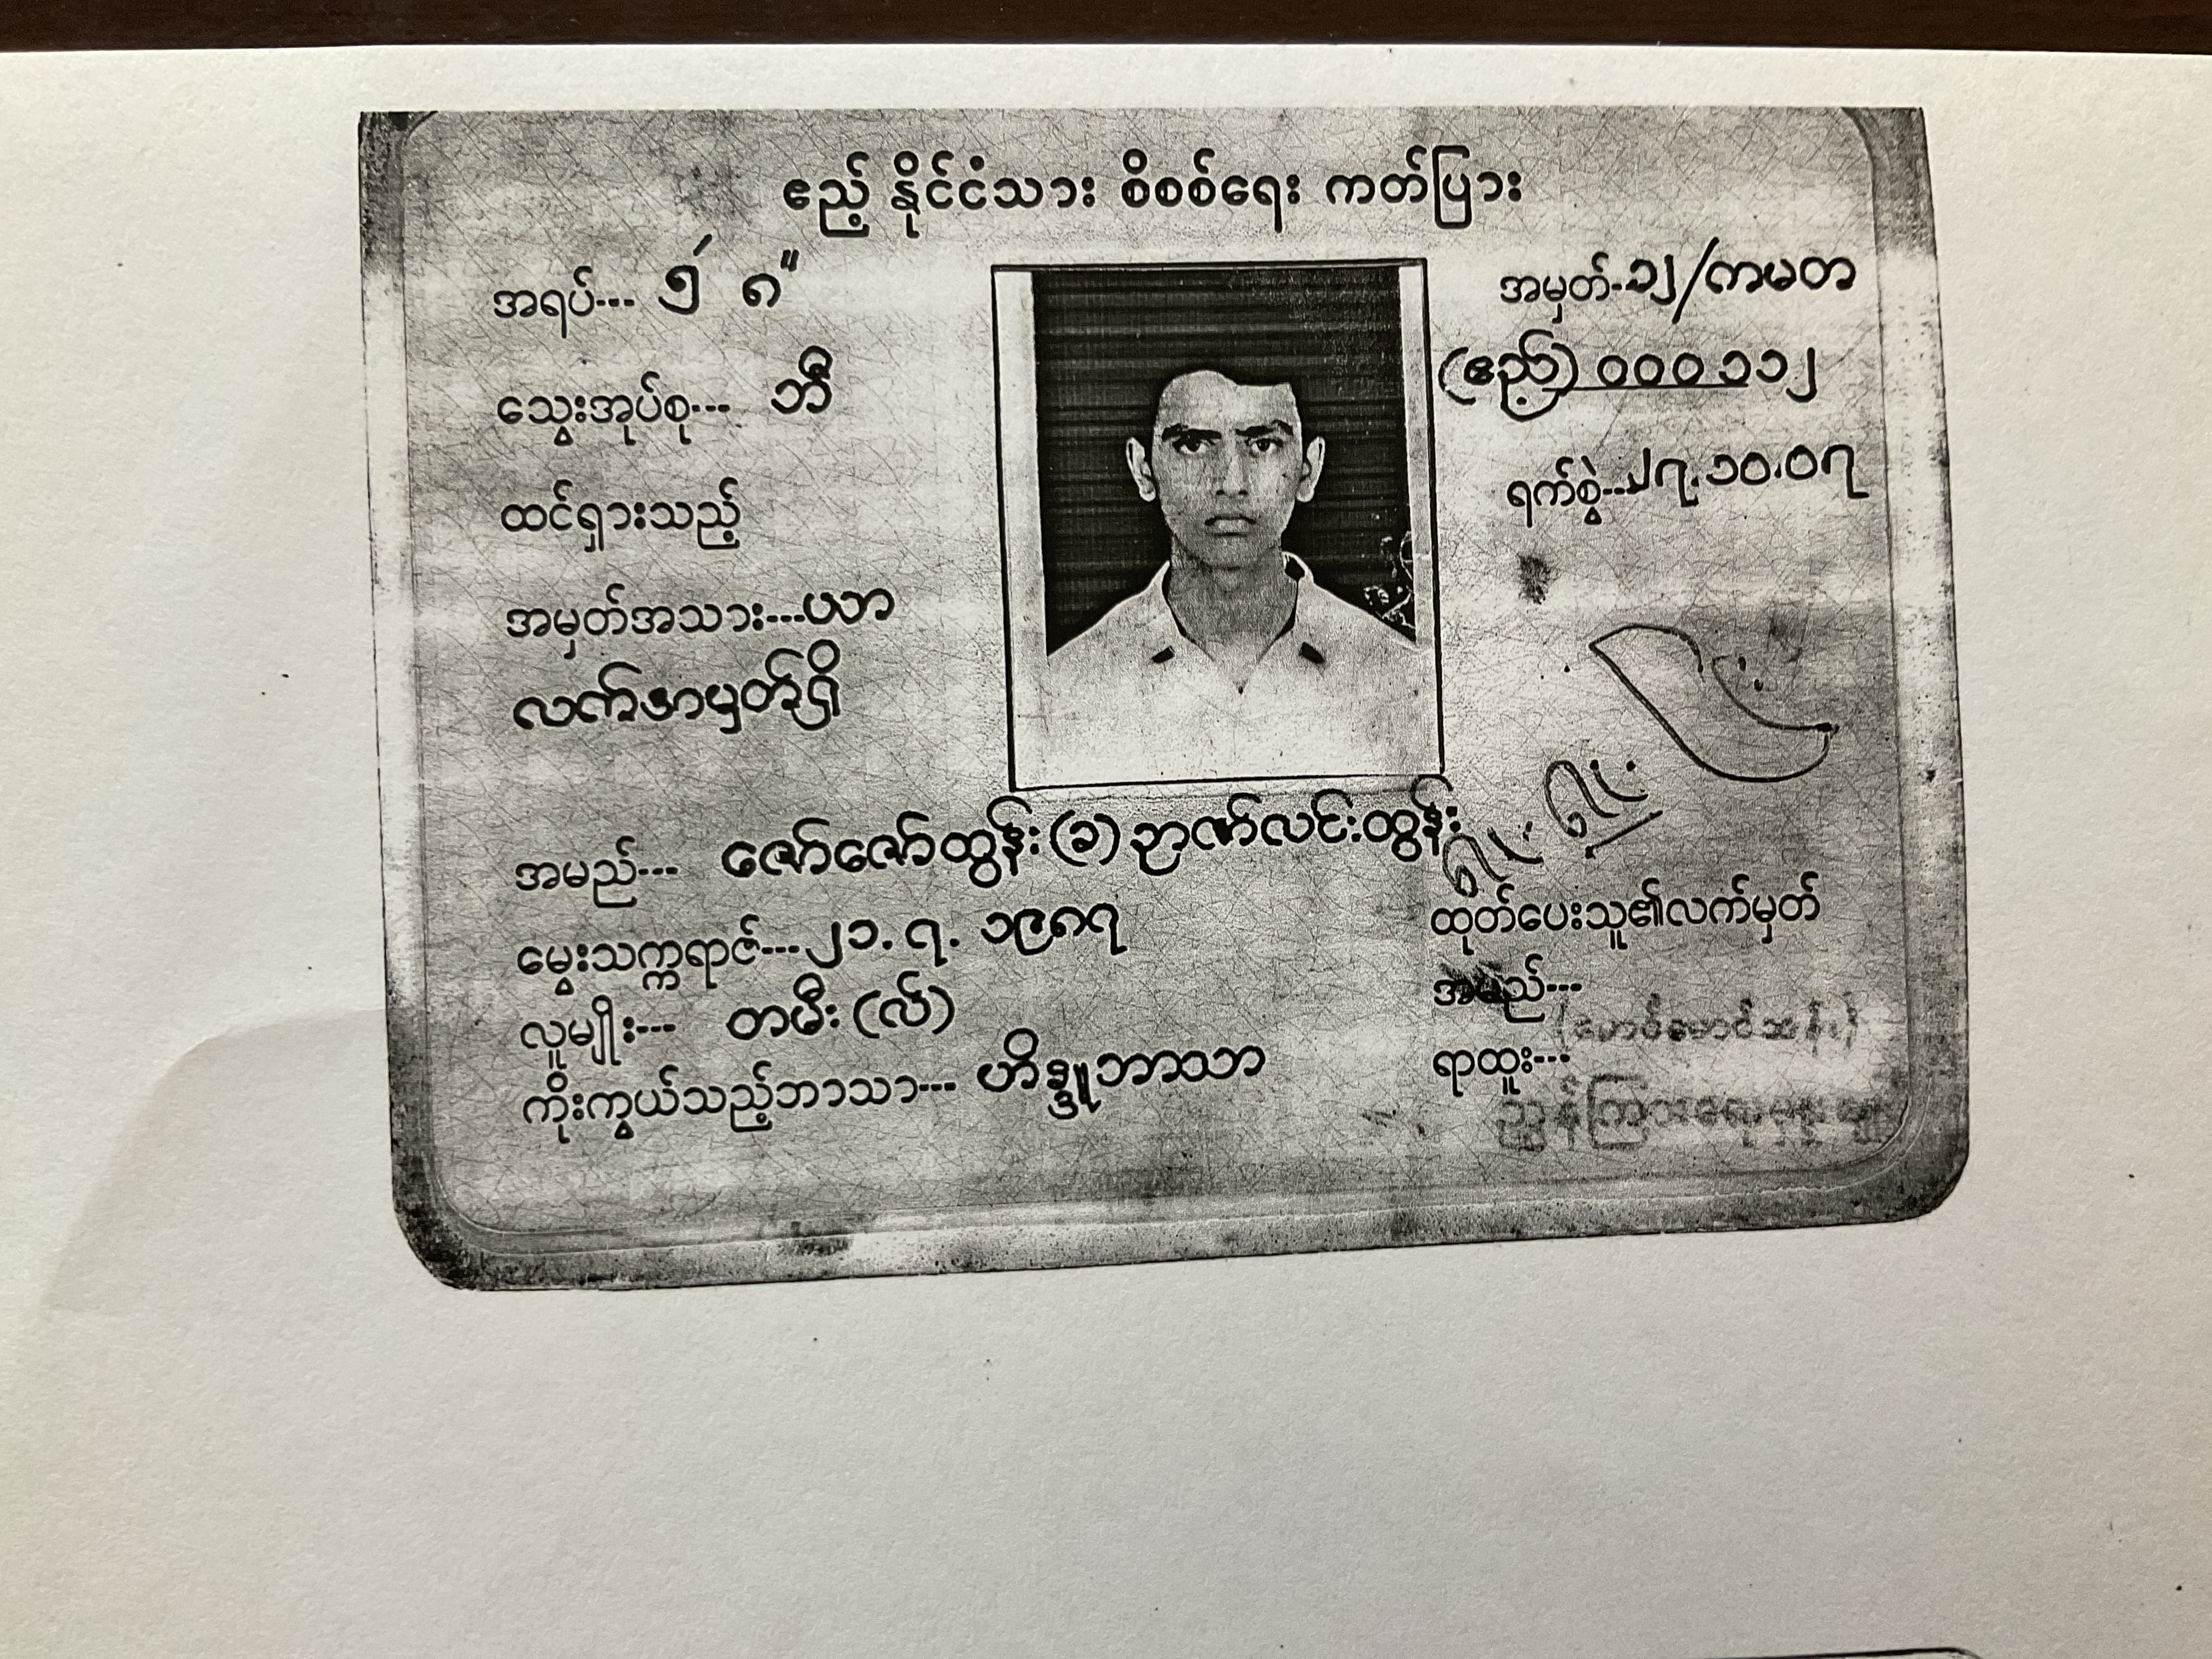 ဧည့် နိုင်ငံသား စိစစ်ရေး ကတ်ပြား
အရပ်--- ၅' ၈"
သွေးအုပ်စု--- ဘီ
ထင်ရှားသည့်
အမှတ်အသား---ယာ
လက်အမှတ်ရှိ
အမှတ်-၁၂/ကမတ
(ဧည့်) ၀၀၀၁၁၂
ရက်စွဲ---၂၇.၁၀.၀၇
အမည်--- ဇော်ဇော်ထွန်း(ခ)ဉာဏ်လင်းထွန်း
မွေးသက္ကရာဇ်---၂၁.၇.၁၉၈၇
လူမျိုး--- တမီး(လ်)
ကိုးကွယ်သည့်ဘာသာ--- ဟိန္ဒူဘာသာ
ထုတ်ပေးသူ၏လက်မှတ်
အမည်---
ရာထူး---